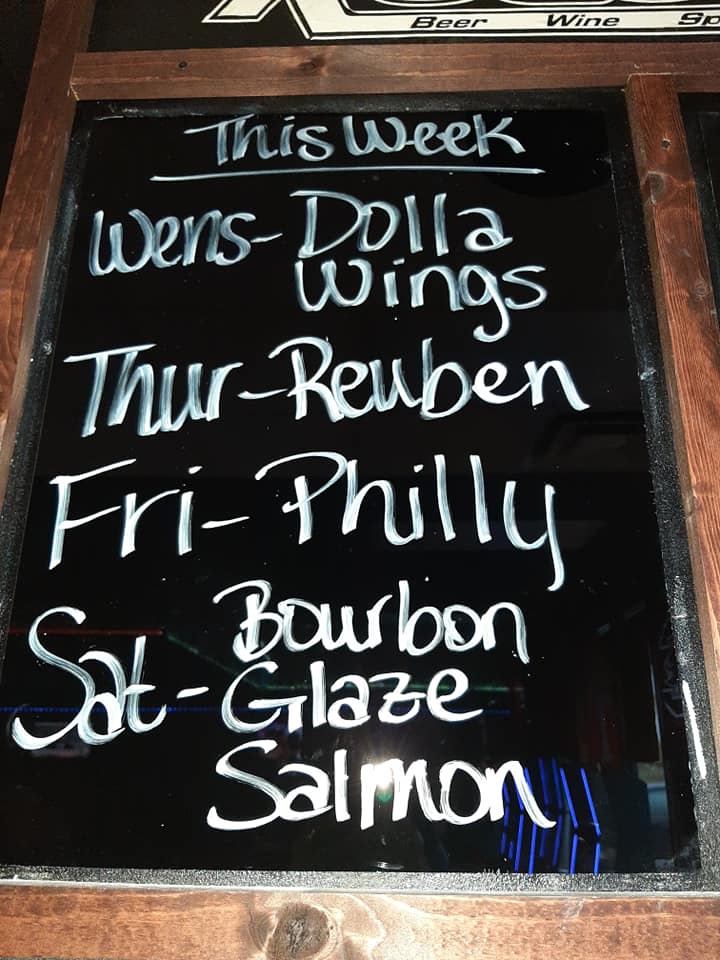 Beer Wine Sp
This Week
Wens- Dolla
Wings
Thur-Reuben
Fri-Philly
Bourbon
Sat-Glaze
Salmon